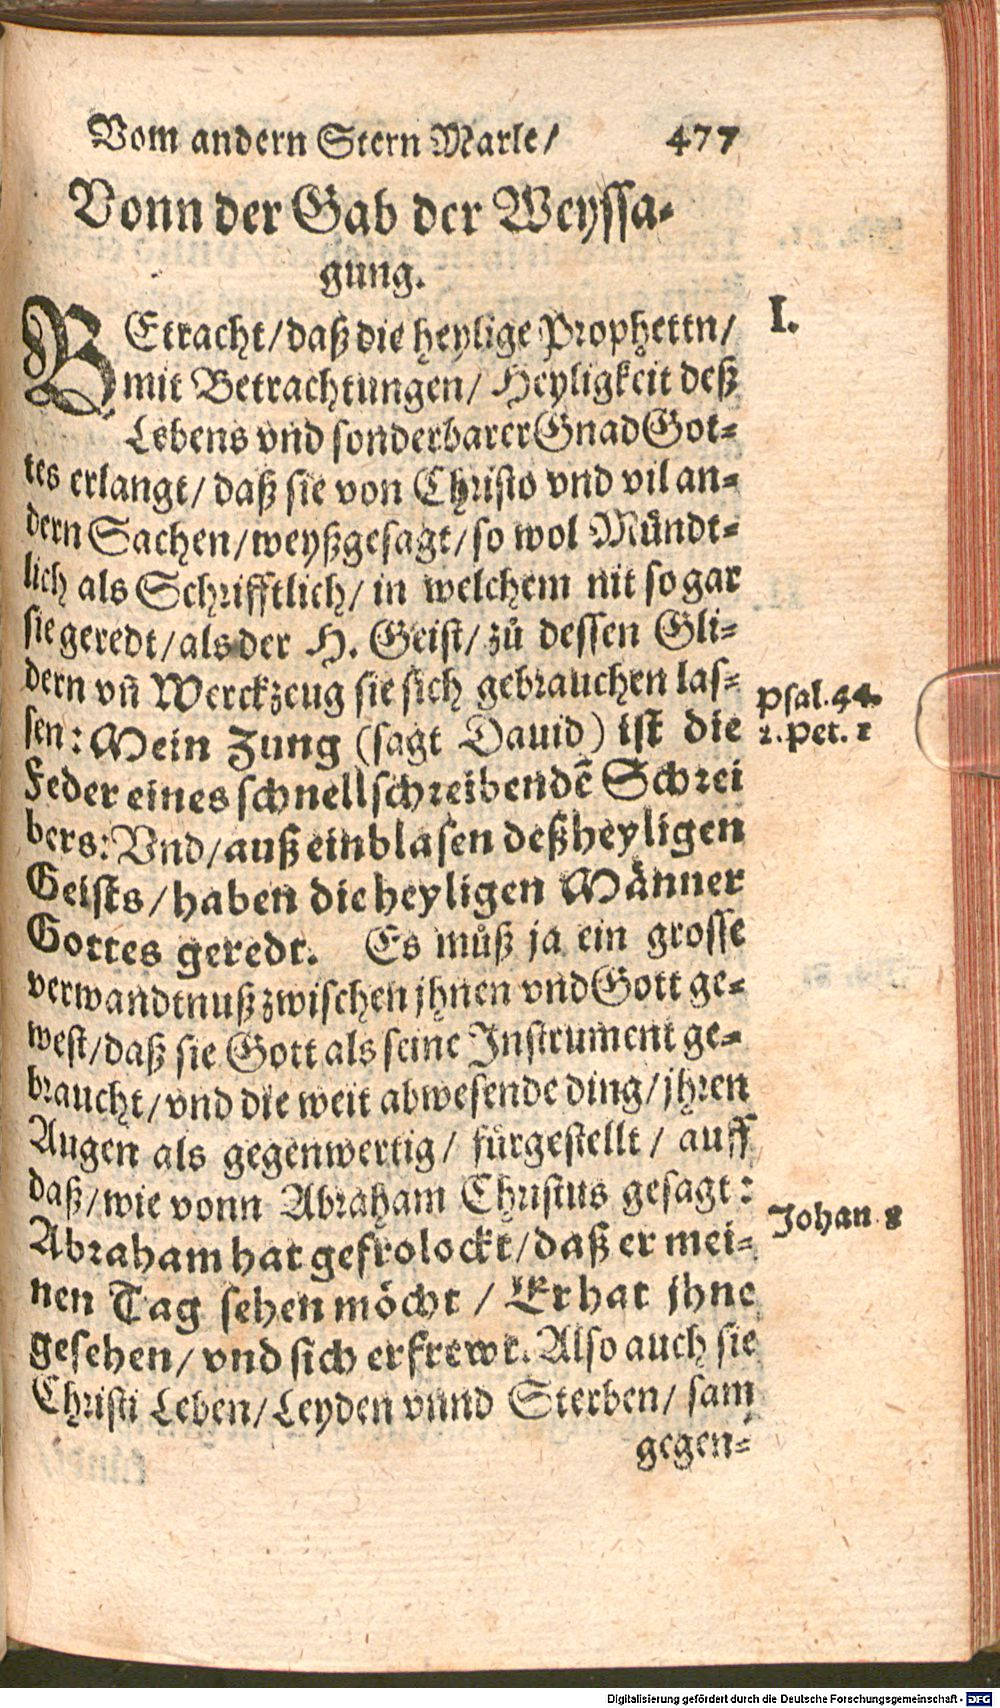 Vom andern Stern Marie/ 477
Vonn der Gab der Weyssa-
gung.
BEtracht/ daß die heylige Prophettn/ I.
mit Betrachtungen/ Heyligkeit deß
Lebens vnd sonderbarer Gnad Got-
tes erlangt/ daß sie von Christo vnd vil an-
dern Sachen/ weyßgesagt/ so wol Mündt-
lich als Schrifftlich/ in welchem nit so gar
sie geredt/ als der H. Geist/ zů dessen Gli-
dern vñ Werckzeug sie sich gebrauchen las-
sen: Mein Zung (sagt Dauid) ist die
Psal. 44.
2. Pet. 1
Feder eines schnell schreibendẽ Schrei
bers: Vnd/ auß einblasen deß heyligen
Geists/ haben die heyligen Männer
Gottes geredt. Es můß ja ein grosse
verwandtnuß zwischen jhnen vnd Gott ge-
west/ daß sie Gott als seine Instrument ge-
braucht/ vnd die weit abwesende ding/ jhren
Augen als gegenwertig/ fürgestellt/ auff
daß/ wie vonn Abraham Christus gesagt:
Abraham hat gefrolockt/ daß er mei-
Johan 8
nen Tag sehen möcht/ Er hat jhne
gesehen/ vnd sich erfrewt. Also auch sie
Christi Leben/ Leyden vnnd Sterben/ sam
gegen-
Digitalisierung gefördert durch die Deutsche Forschungsgemeinschaft - DFG